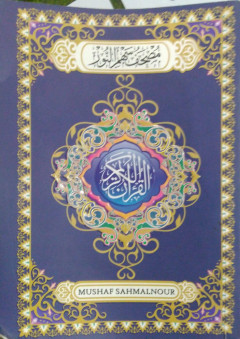 مصحف سهم النور
القرآن الكريم
MUSHAF SAHMALNOUR